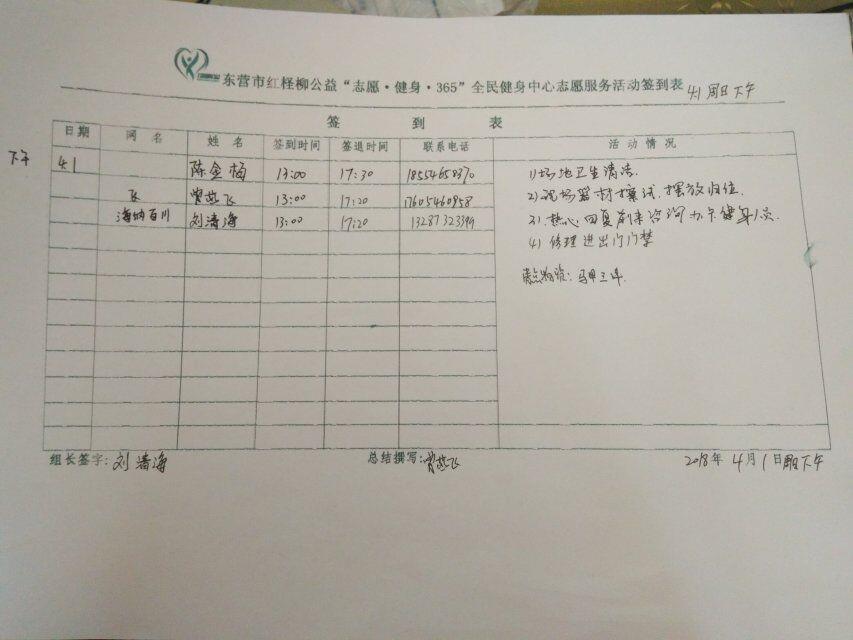 东营市红柽柳公益“志愿·健身·365”全民健身中心志愿服务活动签到表 4.1 周日下午
签到表
日期 网名 姓名 签到时间 签退时间 联系电话 活动情况
下午 4.1 陈金梅 13:00 17:30 18554658370 1)场地卫生清洁.
飞 曾燕飞 13:00 17:20 17605460958 2)现场器材擦试.摆放归位.
海纳百川 刘清海 13:00 17:20 13287323399 3).热心回复前来咨询办卡健身人员.
4)修理进出门门禁
清点物资:马甲三件.
组长签字:刘清海 总结撰写:曾燕飞 2018年4月1日周日下午